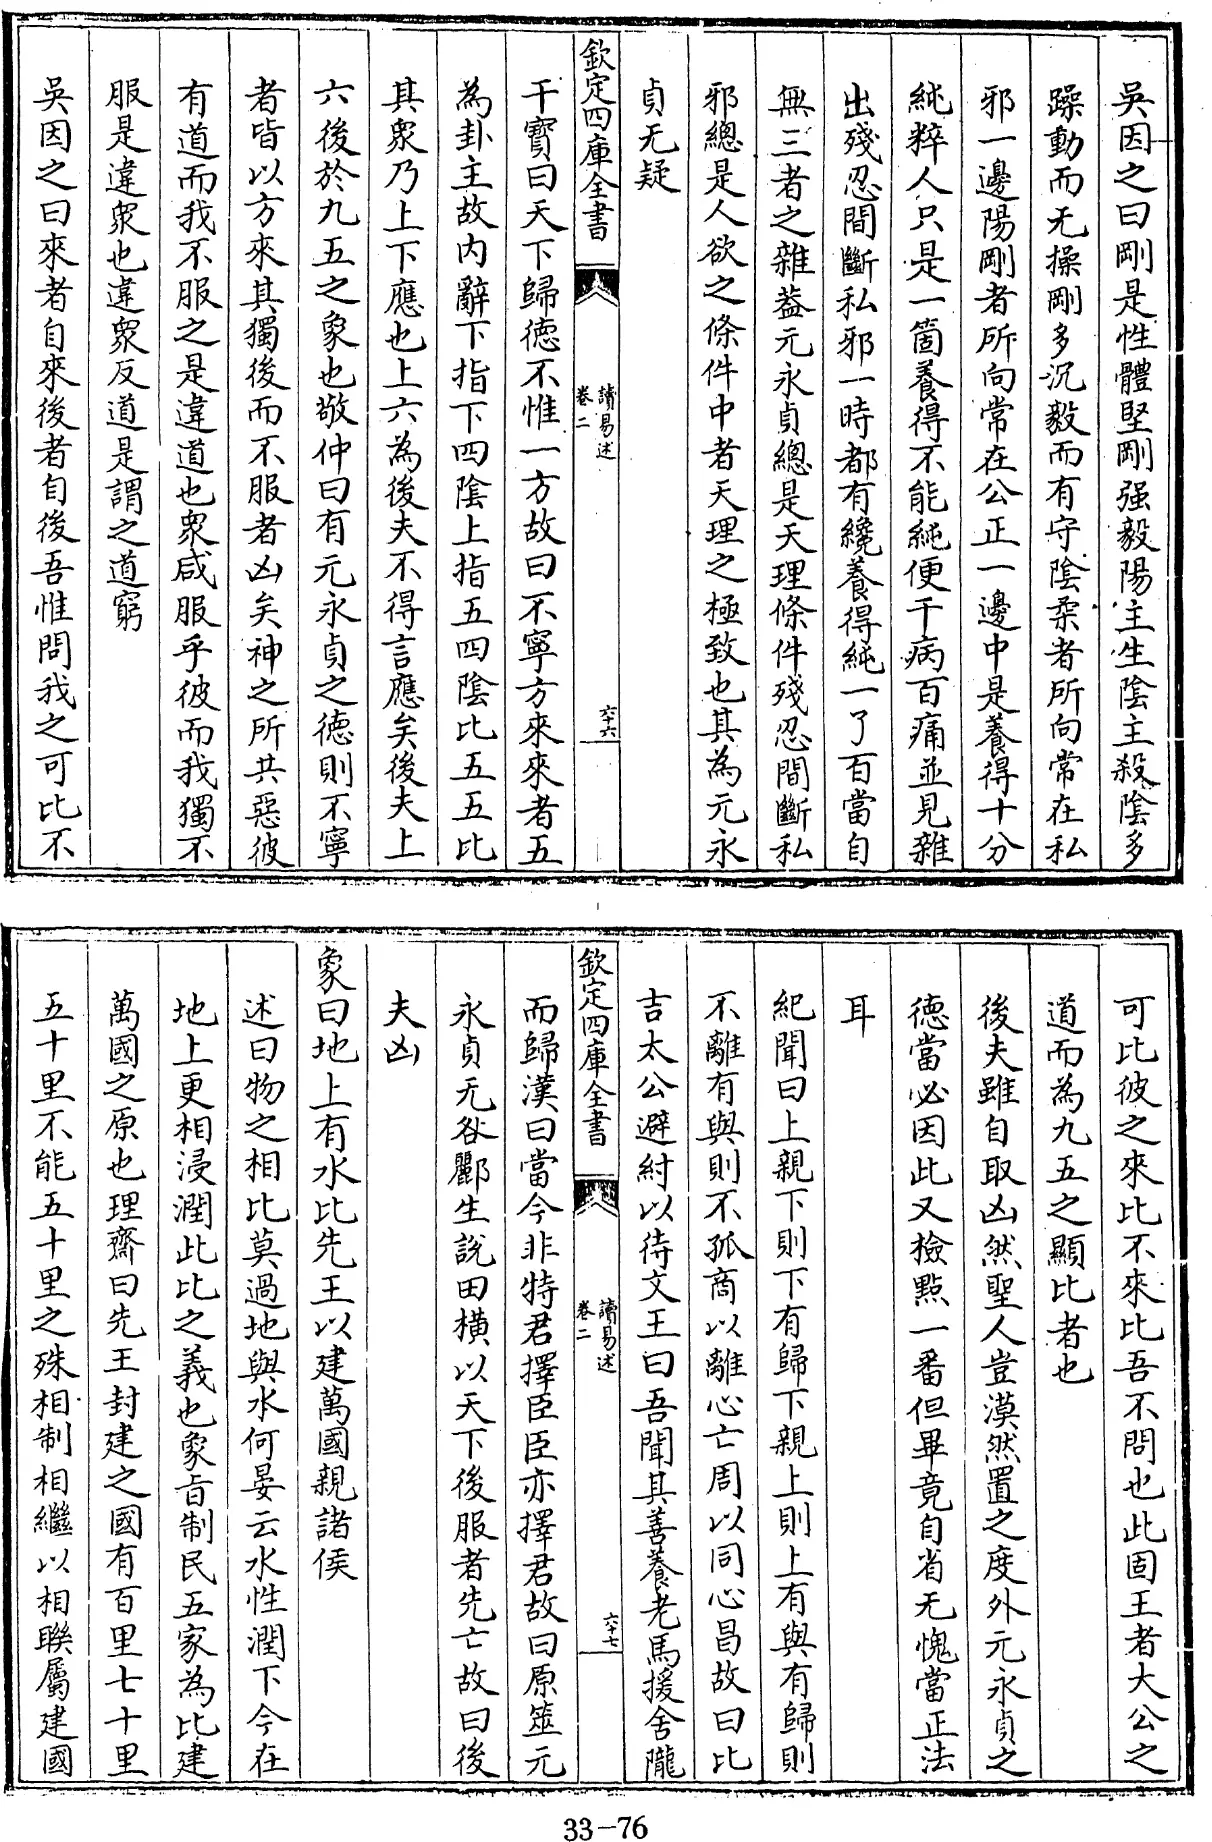 吳因之曰剛是性體堅剛强毅陽主生陰主殺陰多
躁動而无操剛多沉毅而有守陰柔者所向常在私
邪一邊陽剛者所向常在公正一邊中是養得十分
純粹人只是一箇養得不能純便千病百痛並見雜
出殘忍間斷私邪一時都有纔養得純一了百當自
無三者之雜葢元永貞總是天理條件殘忍間斷私
邪總是人欲之條件中者天理之極致也其為元永
貞无疑
欽定四庫全書
讀易述
卷二
六十六
干寶曰天下歸徳不惟一方故曰不寧方來來者五
為卦主故内辭下指下四陰上指五四陰比五五比
其衆乃上下應也上六為後夫不得言應矣後夫上
六後於九五之象也敬仲曰有元永貞之徳則不寧
者皆以方來其獨後而不服者凶矣神之所共惡彼
有道而我不服之是違道也衆咸服乎彼而我獨不
服是違衆也違衆反道是謂之道窮
吳因之曰來者自來後者自後吾惟問我之可比不
可比彼之來比不來比吾不問也此固王者大公之
道而為九五之顯比者也
後夫雖自取凶然聖人豈漠然置之度外元永貞之
德當必因此又檢㸃一番但畢竟自省无愧當正法
耳
紀聞曰上親下則下有歸下親上則上有與有歸則
不離有與則不孤商以離心亡周以同心昌故曰比
吉太公避紂以待文王曰吾聞其善養老馬援舍隴
欽定四庫全書
讀易述
卷二
六十七
而歸漢曰當今非特君擇臣臣亦擇君故曰原筮元
永貞无咎酈生説田横以天下後服者先亡故曰後
夫凶
象曰地上有水比先王以建萬國親諸侯
述曰物之相比莫過地與水何晏云水性潤下今在
地上更相浸潤此比之義也象旨制民五家為比建
萬國之原也理齋曰先王封建之國有百里七十里
五十里不能五十里之殊相制相繼以相聨屬建國
33-76